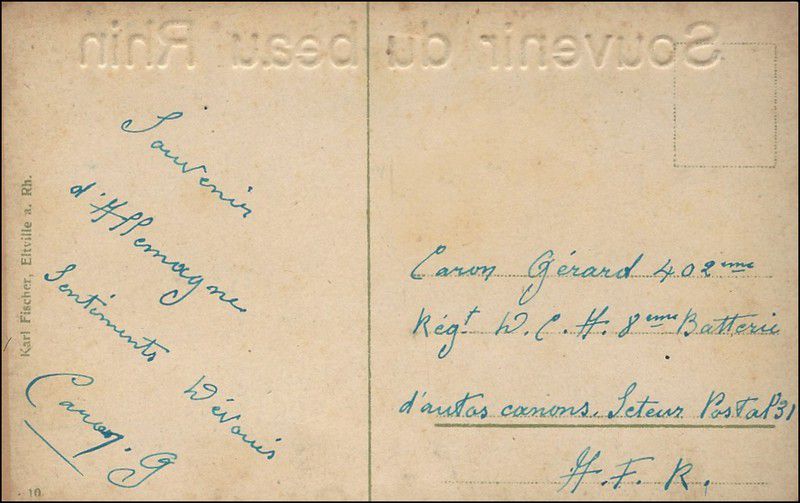 Souvenir du beau Rhin
Souvenir
d'Allemagne
Sentiments Dévoués
Caron. G
Karl Fischer, Eltville a. Rh.
10
Caron Gérard 402eme
Régt D. C. A. 8eme Batterie
d'autos canons. Seteur Postal 31
A. F. R.